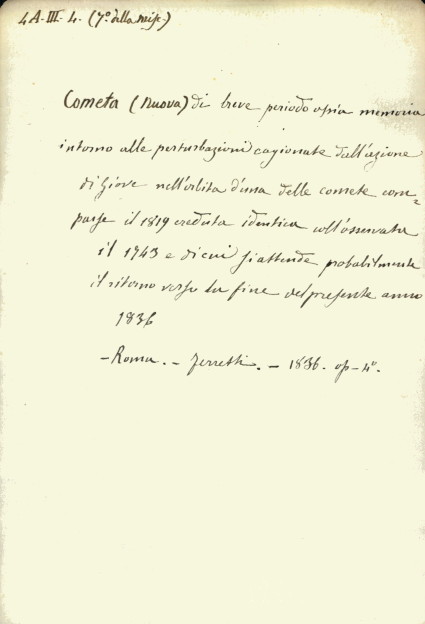 4 A-III-4. (7º della misc.)
Cometa (nuova) di breve periodo ossia memoria
intorno alle perturbazioni cagionate dall'azione
di Giove nell'orbita d'una delle comete com=
parse il 1819 creduta identica coll'osservata
il 1743 e di cui si attende probabilmente
il ritorno verso la fine del presente anno
1836
-Roma. - Ferretti. - 1836. op-4º.